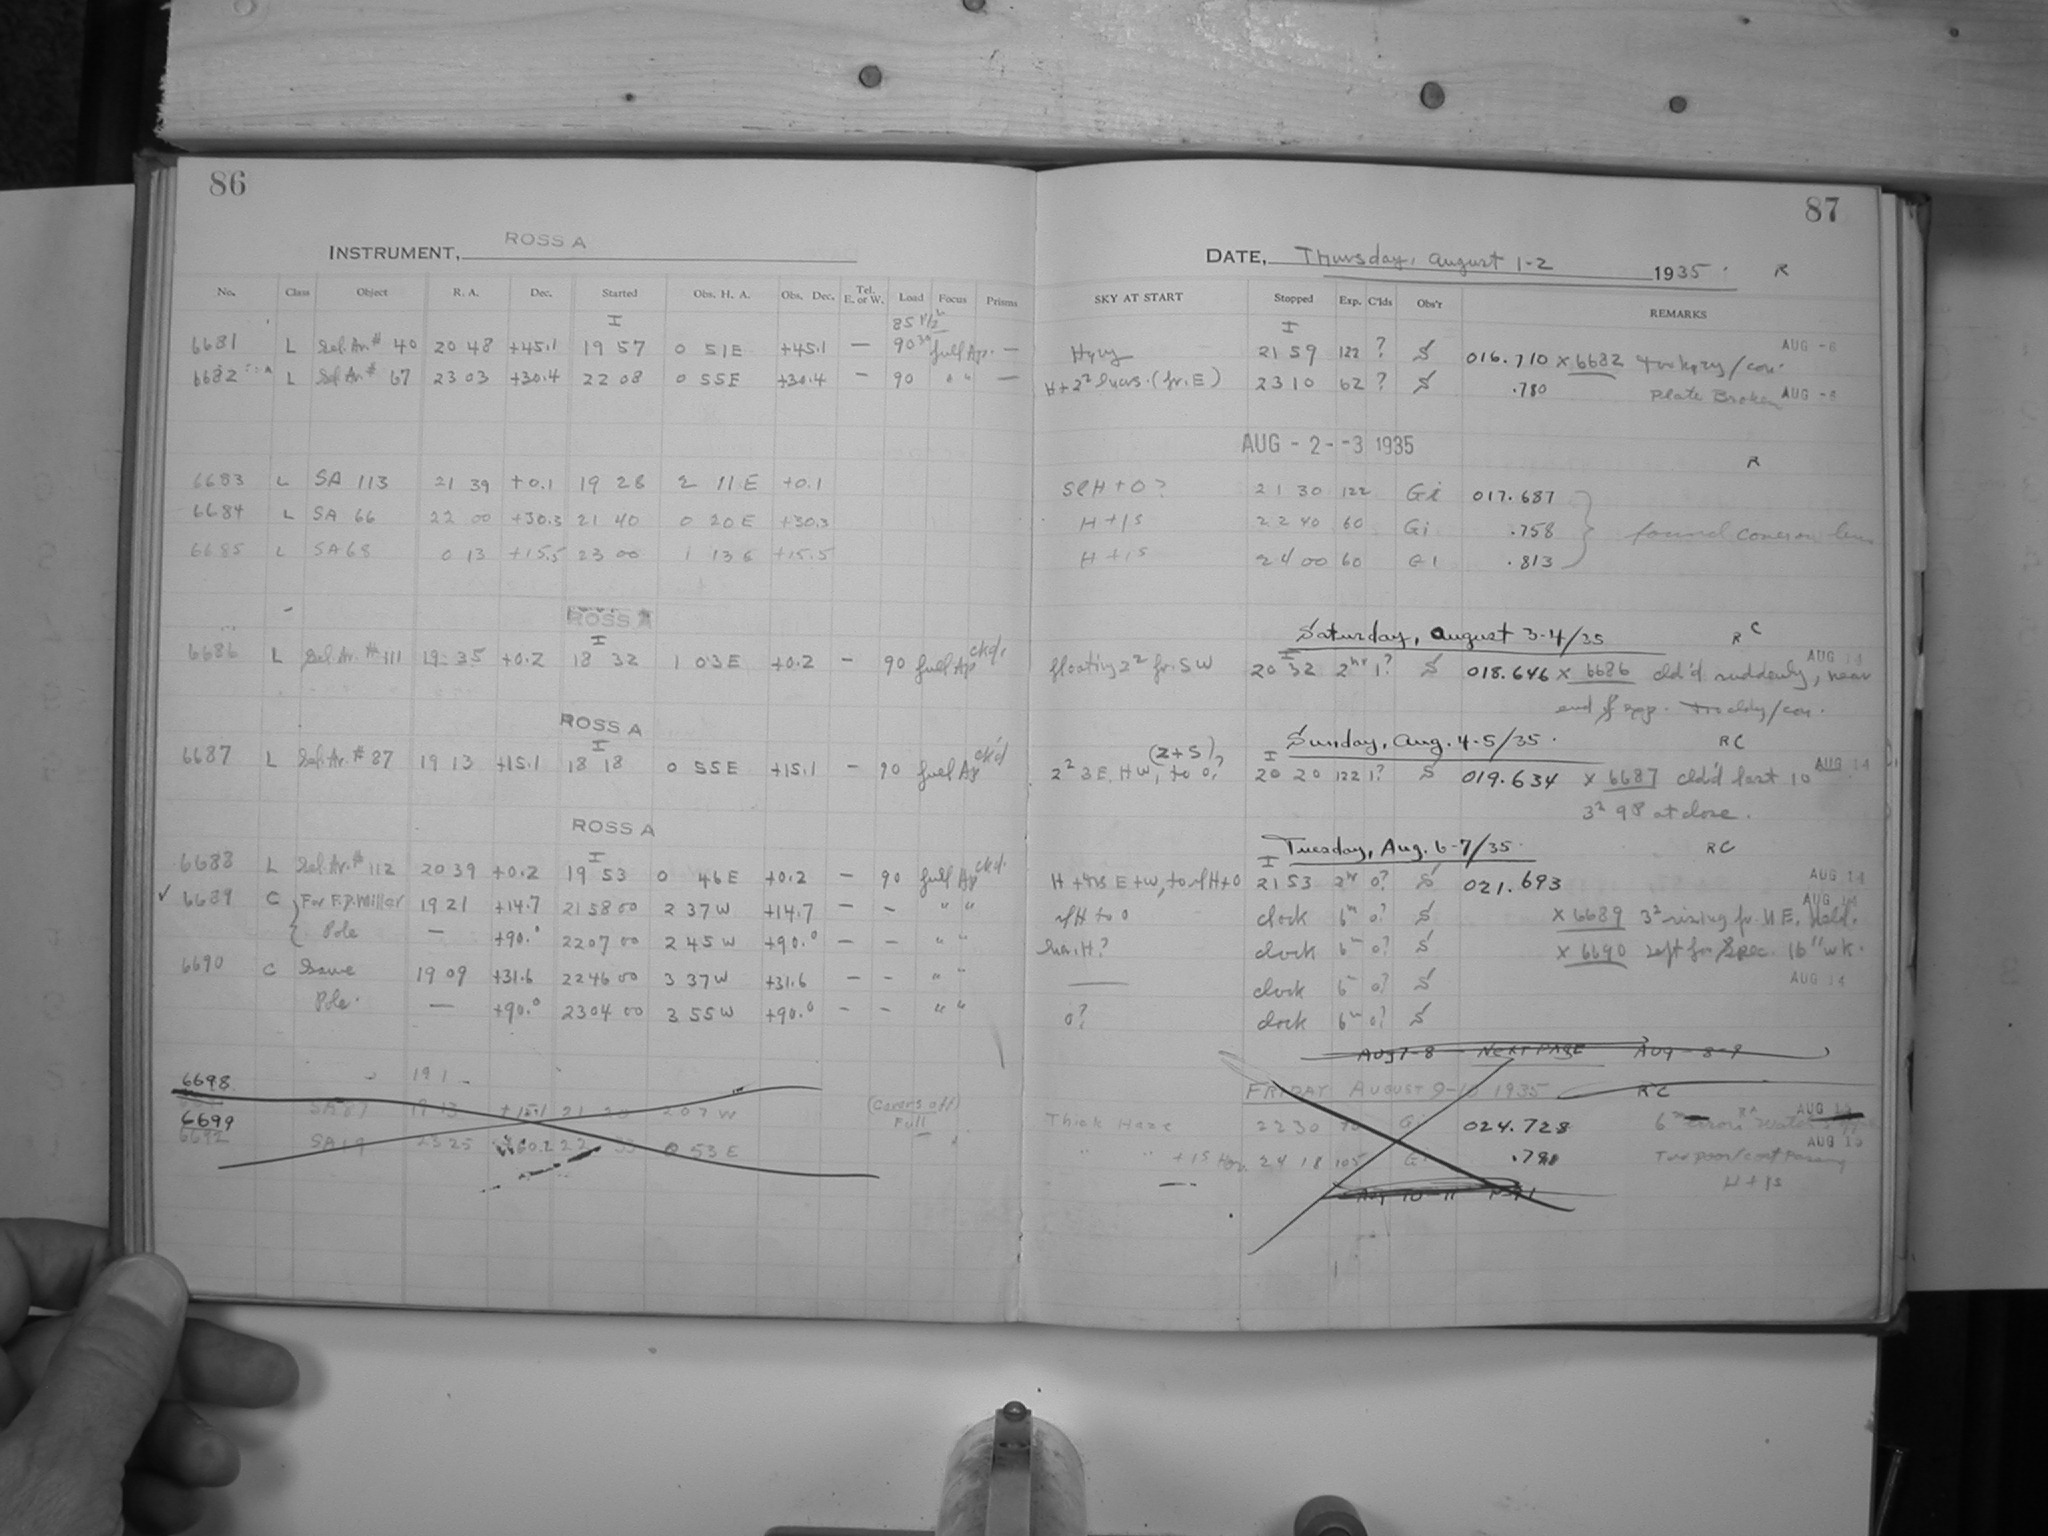 86
INSTRUMENT, ROSS A
No. Class Object R. A. Dec. Started Obs. H. A. Obs. Dec. Tel. E. or W. Load Focus Prisms
I 85 1/2
6681 L Sel. Ar. # 40 20 48 +45.1 19 57 0 51E +45.1 — 90 full Ap. —
6682 L Sel Ar # 67 23 03 +30.4 22 08 0 55E +30.4 — 90 " " —
6683 L SA 113 21 39 +0.1 19 28 2 11 E +0.1
6684 L SA 66 22 00 +30.3 21 40 0 20E +30.3
6685 L SA68 0 13 +15.5 23 00 1 13 E +15.5
ROSS A
I
6686 L Sel. Ar. # 111 19 35 +0.2 18 32 1 03E +0.2 — 90 full Ap ckd.
ROSS A
I
6687 L Sel. Ar. # 87 19 13 +15.1 18 18 0 55E +15.1 — 90 full Ap ck'd
ROSS A
I
6688 L Sel. Ar. # 112 20 39 +0.2 19 53 0 46E +0.2 — 90 full Ap ckd.
✓ 6689 C For F.P. Miller 19 21 +14.7 21 58 00 2 37W +14.7 — - " "
Pole — +90.° 2207 00 2 45W +90.° — — " "
6690 C Same 19 09 +31.6 2246 00 3 37W +31.6 - - " "
Pole. — +90.° 2304 00 3 55W +90.° - - " "
19 1
6698
SA 87 19 13 +15.1 21 20 2 07 W (Covers off) Full
6699
6692 SA19 23 25 +60.2 22 33 0 53 E
87
DATE, Thursday, August 1-2 1935. R
SKY AT START Stopped Exp. C'lds Obs'r REMARKS
I
Hazy 21 59 122 ? S 016.710 x 6682 AUG -6
H+2² Surs. (fr. E) 23 10 62 ? S .780 Plate Broken AUG -6
AUG - 2 - -3 1935
R
SlH + O? 21 30 122 Gi 017.687
H + 1s 22 40 60 Gi .758 found cover on lens
H + 1s 24 00 60 Gi .813
Saturday, August 3-4/35 R C
I AUG 14
floating 2² fr. SW 20 32 2ʰʳ 1? S 018.646 x 6686 cld'd suddenly, near
end of exp.
Sunday, Aug. 4-5/35. RC
(Z+S) I
2² 3 E. HW, to 0? 20 20 122 1? S 019.634 x 6687 cld'd last 10 AUG 14
3² 98 at close.
Tuesday, Aug. 6-7/35. RC
I
E+W, to H+0 21 53 2ʰʳ 0? S 021.693 AUG 14
H to 0 clock 6ᵐ 0? S x 6689 3² rising fr. N E. Held.
H? clock 6ᵐ 0? S x 6690 Left for Spec. 16" wk.
— clock 6ᵐ 0? S AUG 14
0? clock 6ᵐ 0? S
AUG 7-8 - NEXT PAGE AUG - 8-9
FRIDAY AUGUST 9-10 1935 RC
Thick Haze 22 30 70 Gi 024.728 6ᵐ AUG 15
" " + 1s 24 18 105 Gi .791 AUG 15
H + 1s
Aug 10-11 P 91